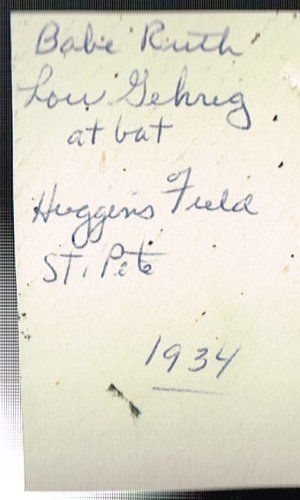 Babe Ruth
Lou Gehrig
at bat
Huggins Field
St. Pete
1934